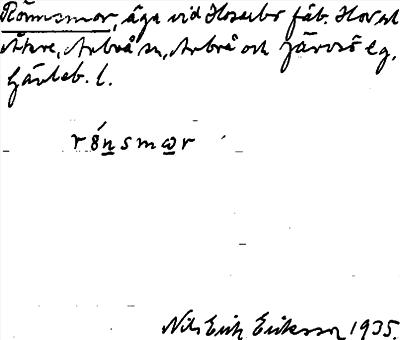 Rönnsmor, äga vid Hosebo fäb. Hov ol
Åkre, Arbrå sn, Arbrå och Järvsö tg,
Gävleb. l.
rönsmor
Nils Erik Eriksson 1935.